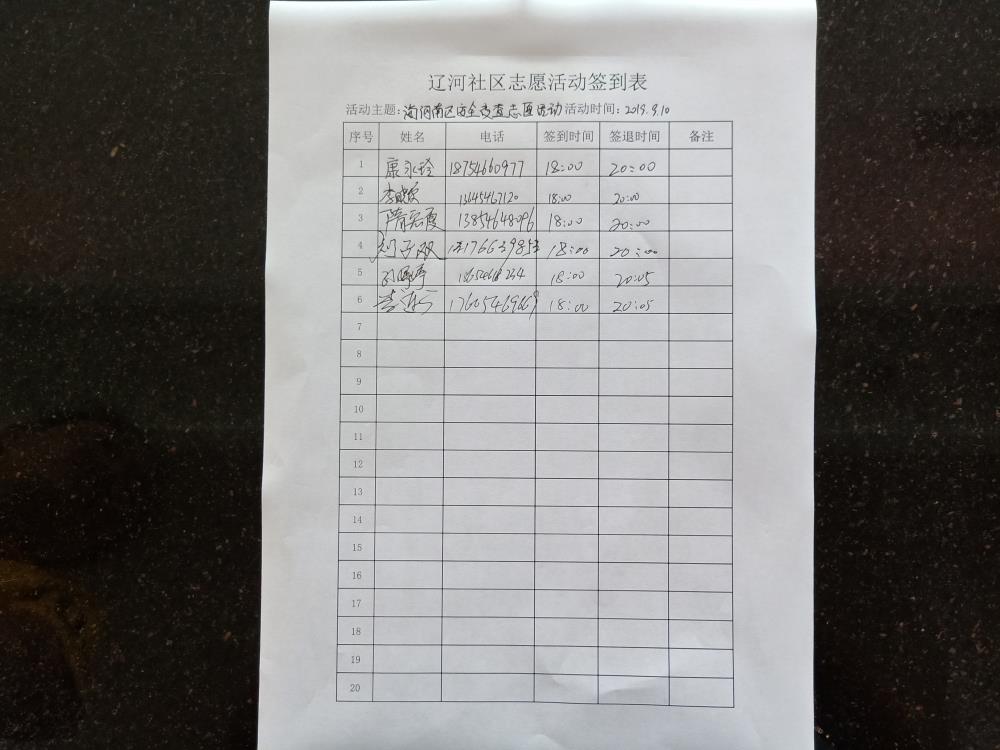 辽河社区志愿活动签到表
活动主题: 海河南区安全检查志愿活动 活动时间: 2019.9.10
序号 姓名 电话 签到时间 签退时间 备注
1 康永玲 18754660977 18:00 20:00
2 李晓 13645467120 18:00 20:00
3 隋宏霞 13854648096 18:00 20:00
4 刘子双 18:00 20:00
5 刘婷婷 18:00 20:05
6 18:00 20:05
7
8
9
10
11
12
13
14
15
16
17
18
19
20